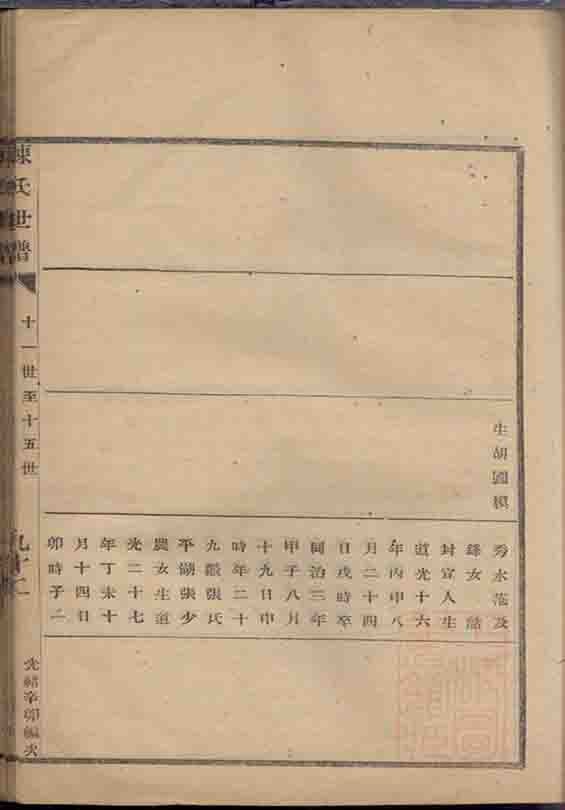 生胡國模
秀水范及
錄女誥
封宜人生
道光十六
年丙申八
月二十四
日戌時卒
同治三年
甲子八月
十九日申
時年二十
九繼張氏
平湖張少
農女生道
光二十七
年丁未十
月十四日
卯時子二
陳氏世譜
十一世至十五世
九十二
光緒辛卯編次